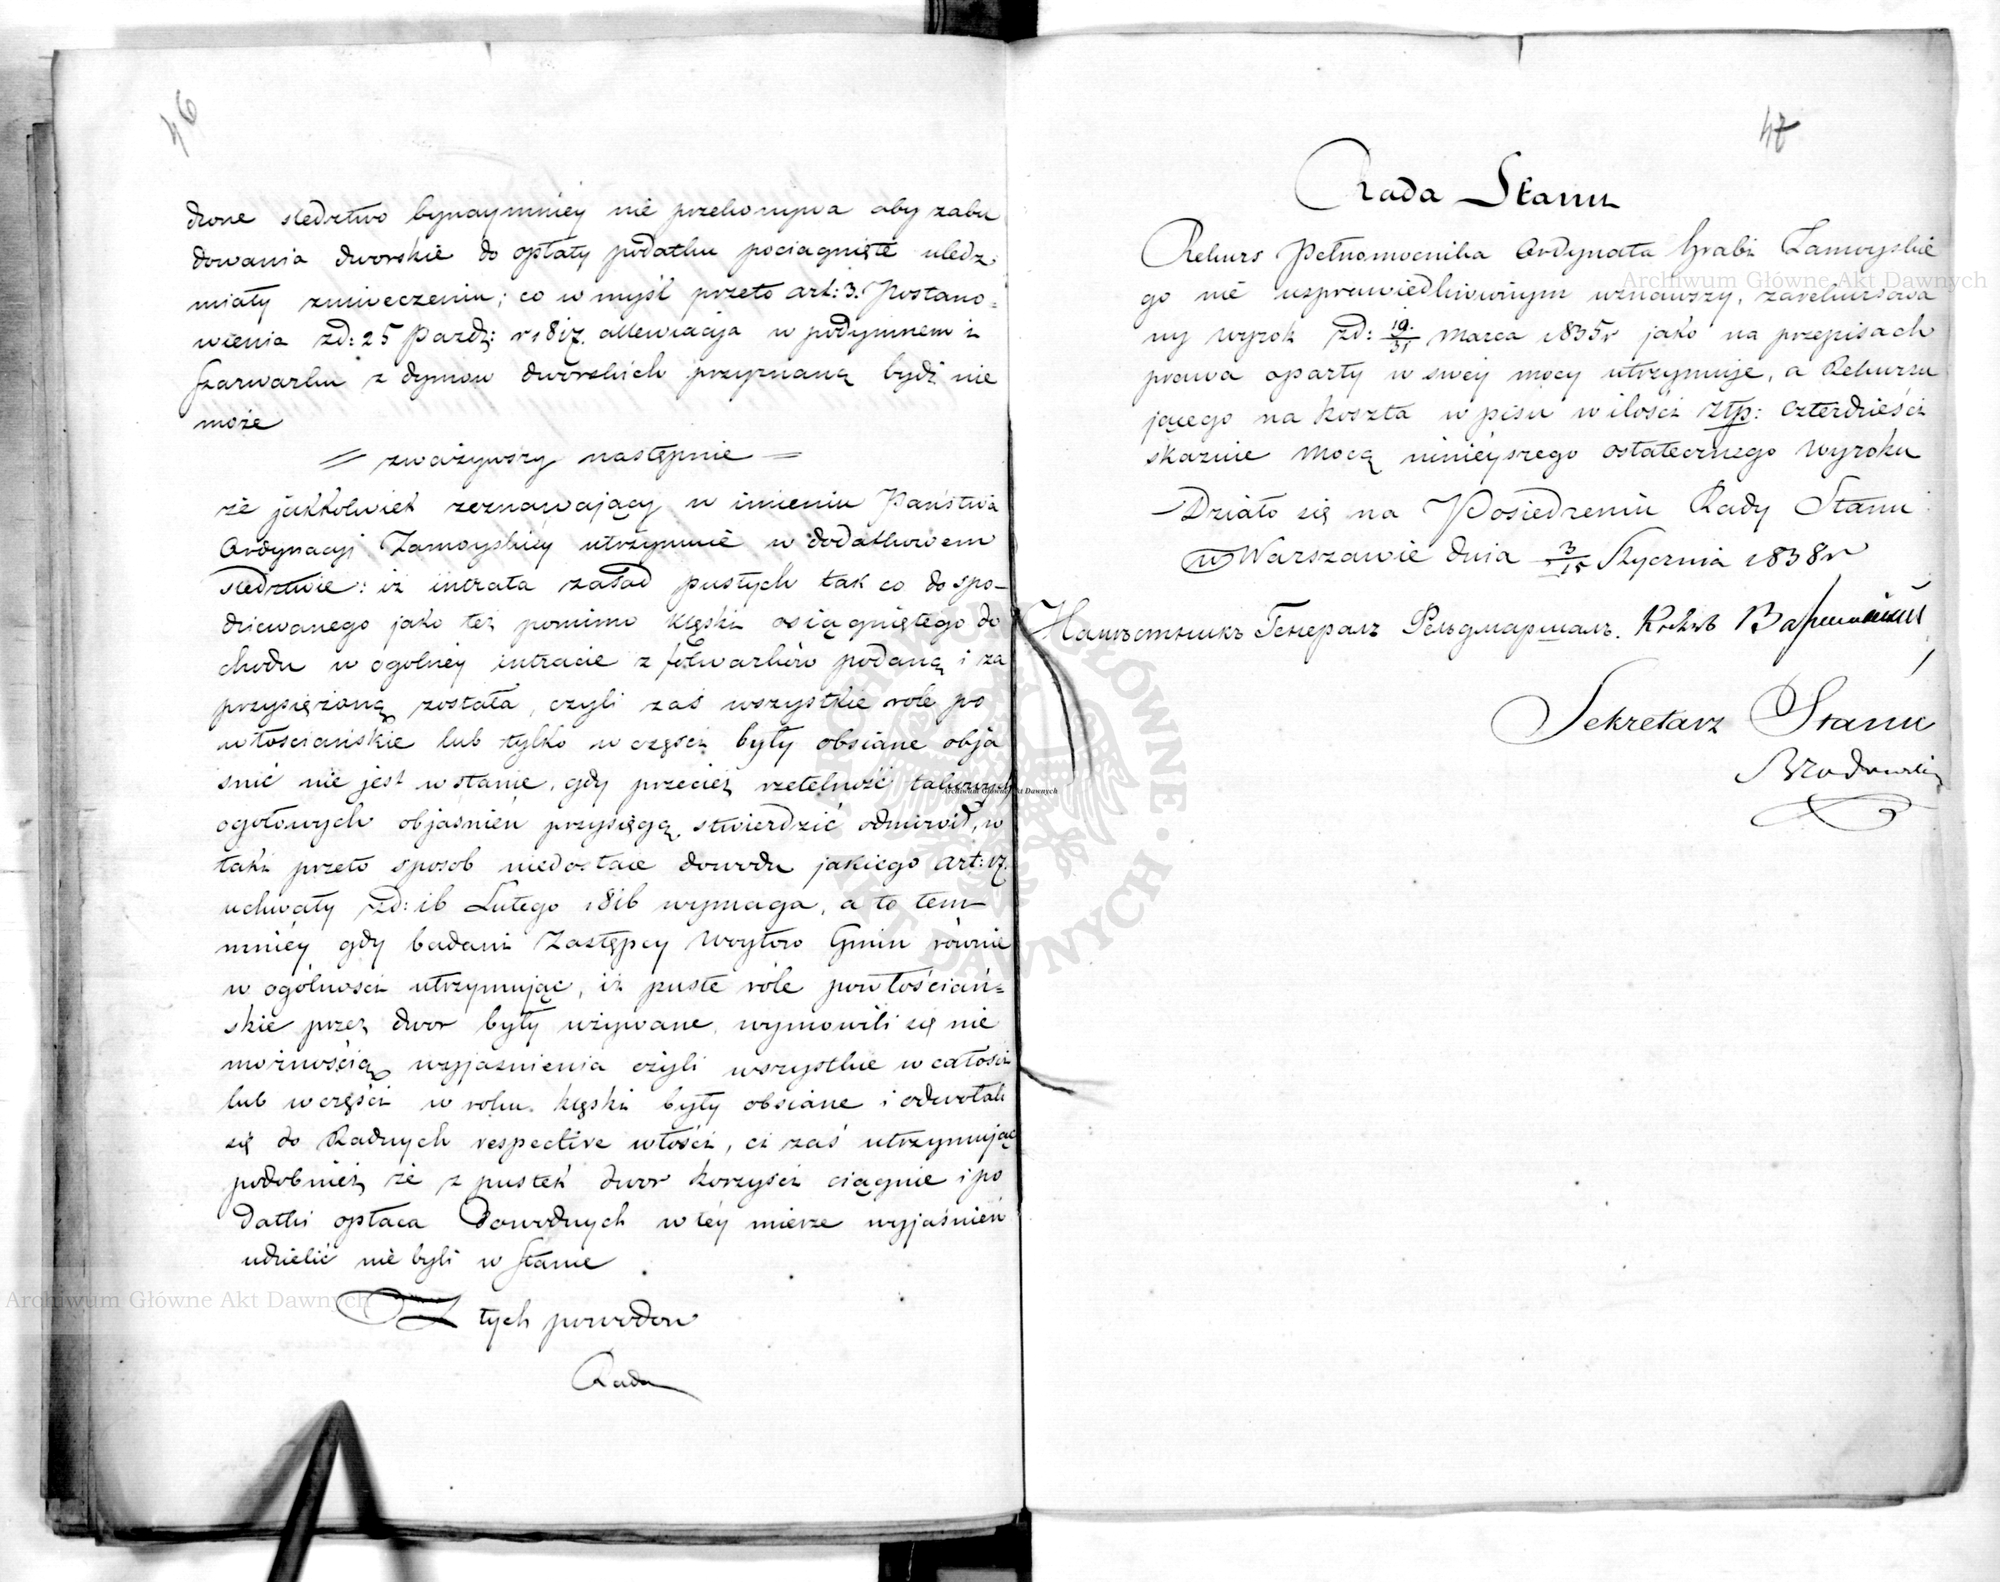 46
dzone sledztwo bynaymniey nie przekonywa aby zabu
dowania dworskie do opłaty podatku pociągnięte uledz
miały zniszczeniu; co w myśl przeto art: 3. Postano=
wienia zd: 25 Pazdz: r 1817. allewiacija w podymnem i
Szarwarku z dymow dworskich przyznaną bydź nie
może
= zważywszy następnie =
że jakkolwiek zeznawający w imieniu Państwa
Ordynacyi Zamoyskiey utrzymuie w dodatkowem
sledztwie: iż intrata zasad pustych tak co do spo-
dziewanego jako też pomimo klęski osiągniętego do
chodu w ogolney intracie z folwarków podaną i za
przysiężoną została, czyli zaś wszystkie role po
włościańskie lub tylko w częsci były obsiane obja
snić nie jest w stanie, gdy przecież rzetelność takowych
ogołowych objaśnień przysięgą stwierdzić odmówił, w
taki przeto sposob niedostaie dowodu jakiego art: 17.
uchwały zd: 16 Lutego 1816 wymaga, a to tem
mniéy gdy badani Zastępcy Woytow Gmin równie
w ogólnosci utrzymując, iż puste role powłościań=
skie przez dwor były używane, wymowili się nie
możnością wyjasnienia czyli wszystkie w całości
lub w części w roku klęski były obsiane i odwołali
się do Radnych respective włości, ci zaś utrzymując
podobnież że z pustek dwor korzyści ciągnie i po
datki opłaca dowodnych w téy mierze wyjaśnień
udzielić nie byli w stanie
Z tych powodow
Rada
47
Rada Stanu
Rekurs Pełnomocnika Ordynata Hrabi Zamoyskie
go nie usprawiedliwionym uznawszy, zarekursowa
ny wyrok zd: 19/31 Marca 1835r jako na przepisach
prawa oparty w swey mocy utrzymuje, a Rekursu
jącego na koszta wpisu w ilości złp: czterdzieści
skazuie mocą ninieyszego ostatecznego wyroku
Działo się na Posiedzeniu Rady Stanu
w Warszawie dnia 3/15 Stycznia 1838r
Намѣстникъ Генералъ Фельдмаршалъ. Князь Варшавскій
Sekretarz Stanu
Archiwum Główne Akt Dawnych
Archiwum Główne Akt Dawnych
Archiwum Główne Akt Dawnych
ARCHIWUM GŁÓWNE · AKT DAWNYCH ·